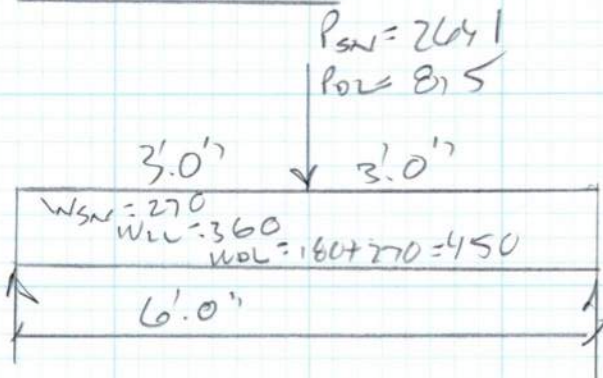 PSN = 2641
PDL = 815
3'.0" 3'.0"
WSN = 270
WLL = 360
WDL = 180 + 270 = 450
6'.0"